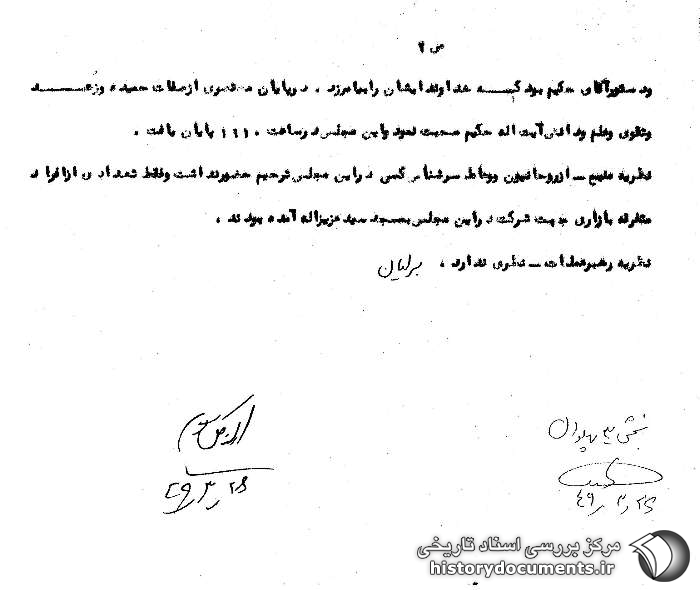 ص ۲
ودستورآقای حکیم بود که خداوند ایشان را بیامرزد . درپایان مختصری ازصفات حمیده وزهد
وتقوی وعلم ودانش آیت اله حکیم صحبت نمود واین مجلس درساعت ۱۱۱۰ پایان یافت .
نظریه منبع ــ ازروحانیون ووعاظ سرشناس کسی دراین مجلس ترحیم حضورنداشت وفقط تعدادی ازافراد
متفرقه بازاری جهت شرکت دراین مجلس بمسجد سید عزیزاله آمده بودند .
نظریه رهبرعملیات ــ نظری ندارد .
بخش ۳
۴۹٫۳٫۲۶
۴۹٫۳٫۲۶
مرکز بررسی اسناد تاریخی
historydocuments.ir